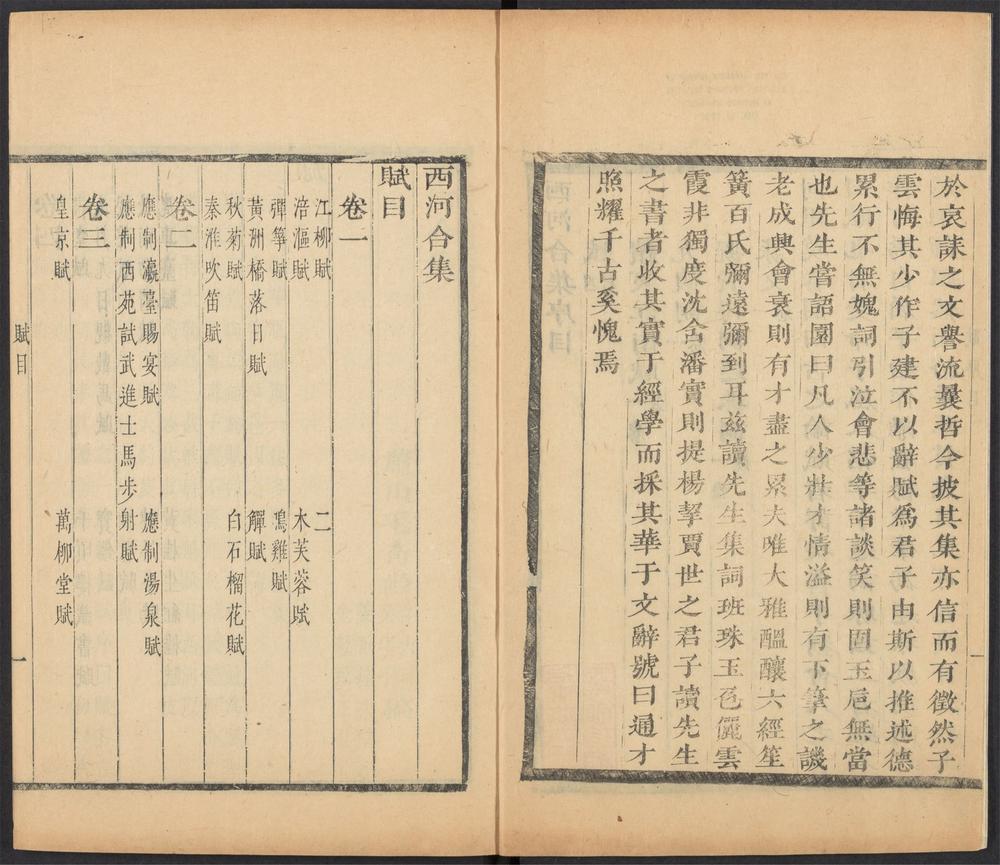 於哀誄之文譽流曩哲今披其集亦信而有徵然子
雲悔其少作子建不以辭賦為君子由斯以推述德
累行不無媿詞引泣會悲等諸談笑則固玉巵無當
也先生嘗語園曰凡人少壯才情溢則有下筆之譏
老成興會衰則有才盡之累夫唯大雅醞釀六經笙
簧百氏彌遠彌到耳茲讀先生集詞班珠玉色儷雲
霞非獨度沈含潘實則提楊挈賈世之君子讀先生
之書者收其實于經學而採其華于文辭號曰通才
照耀千古奚愧焉
西河合集
賦目
卷一
江柳賦 二
涪漚賦 木芙蓉賦
彈箏賦 䳟雞賦
黃洲橋落日賦 觶賦
秋菊賦 白石榴花賦
秦淮吹笛賦
卷二
應制瀛臺賜宴賦 應制湯泉賦
應制西苑試武進士馬步射賦
卷三
皇京賦 萬柳堂賦
賦目 一